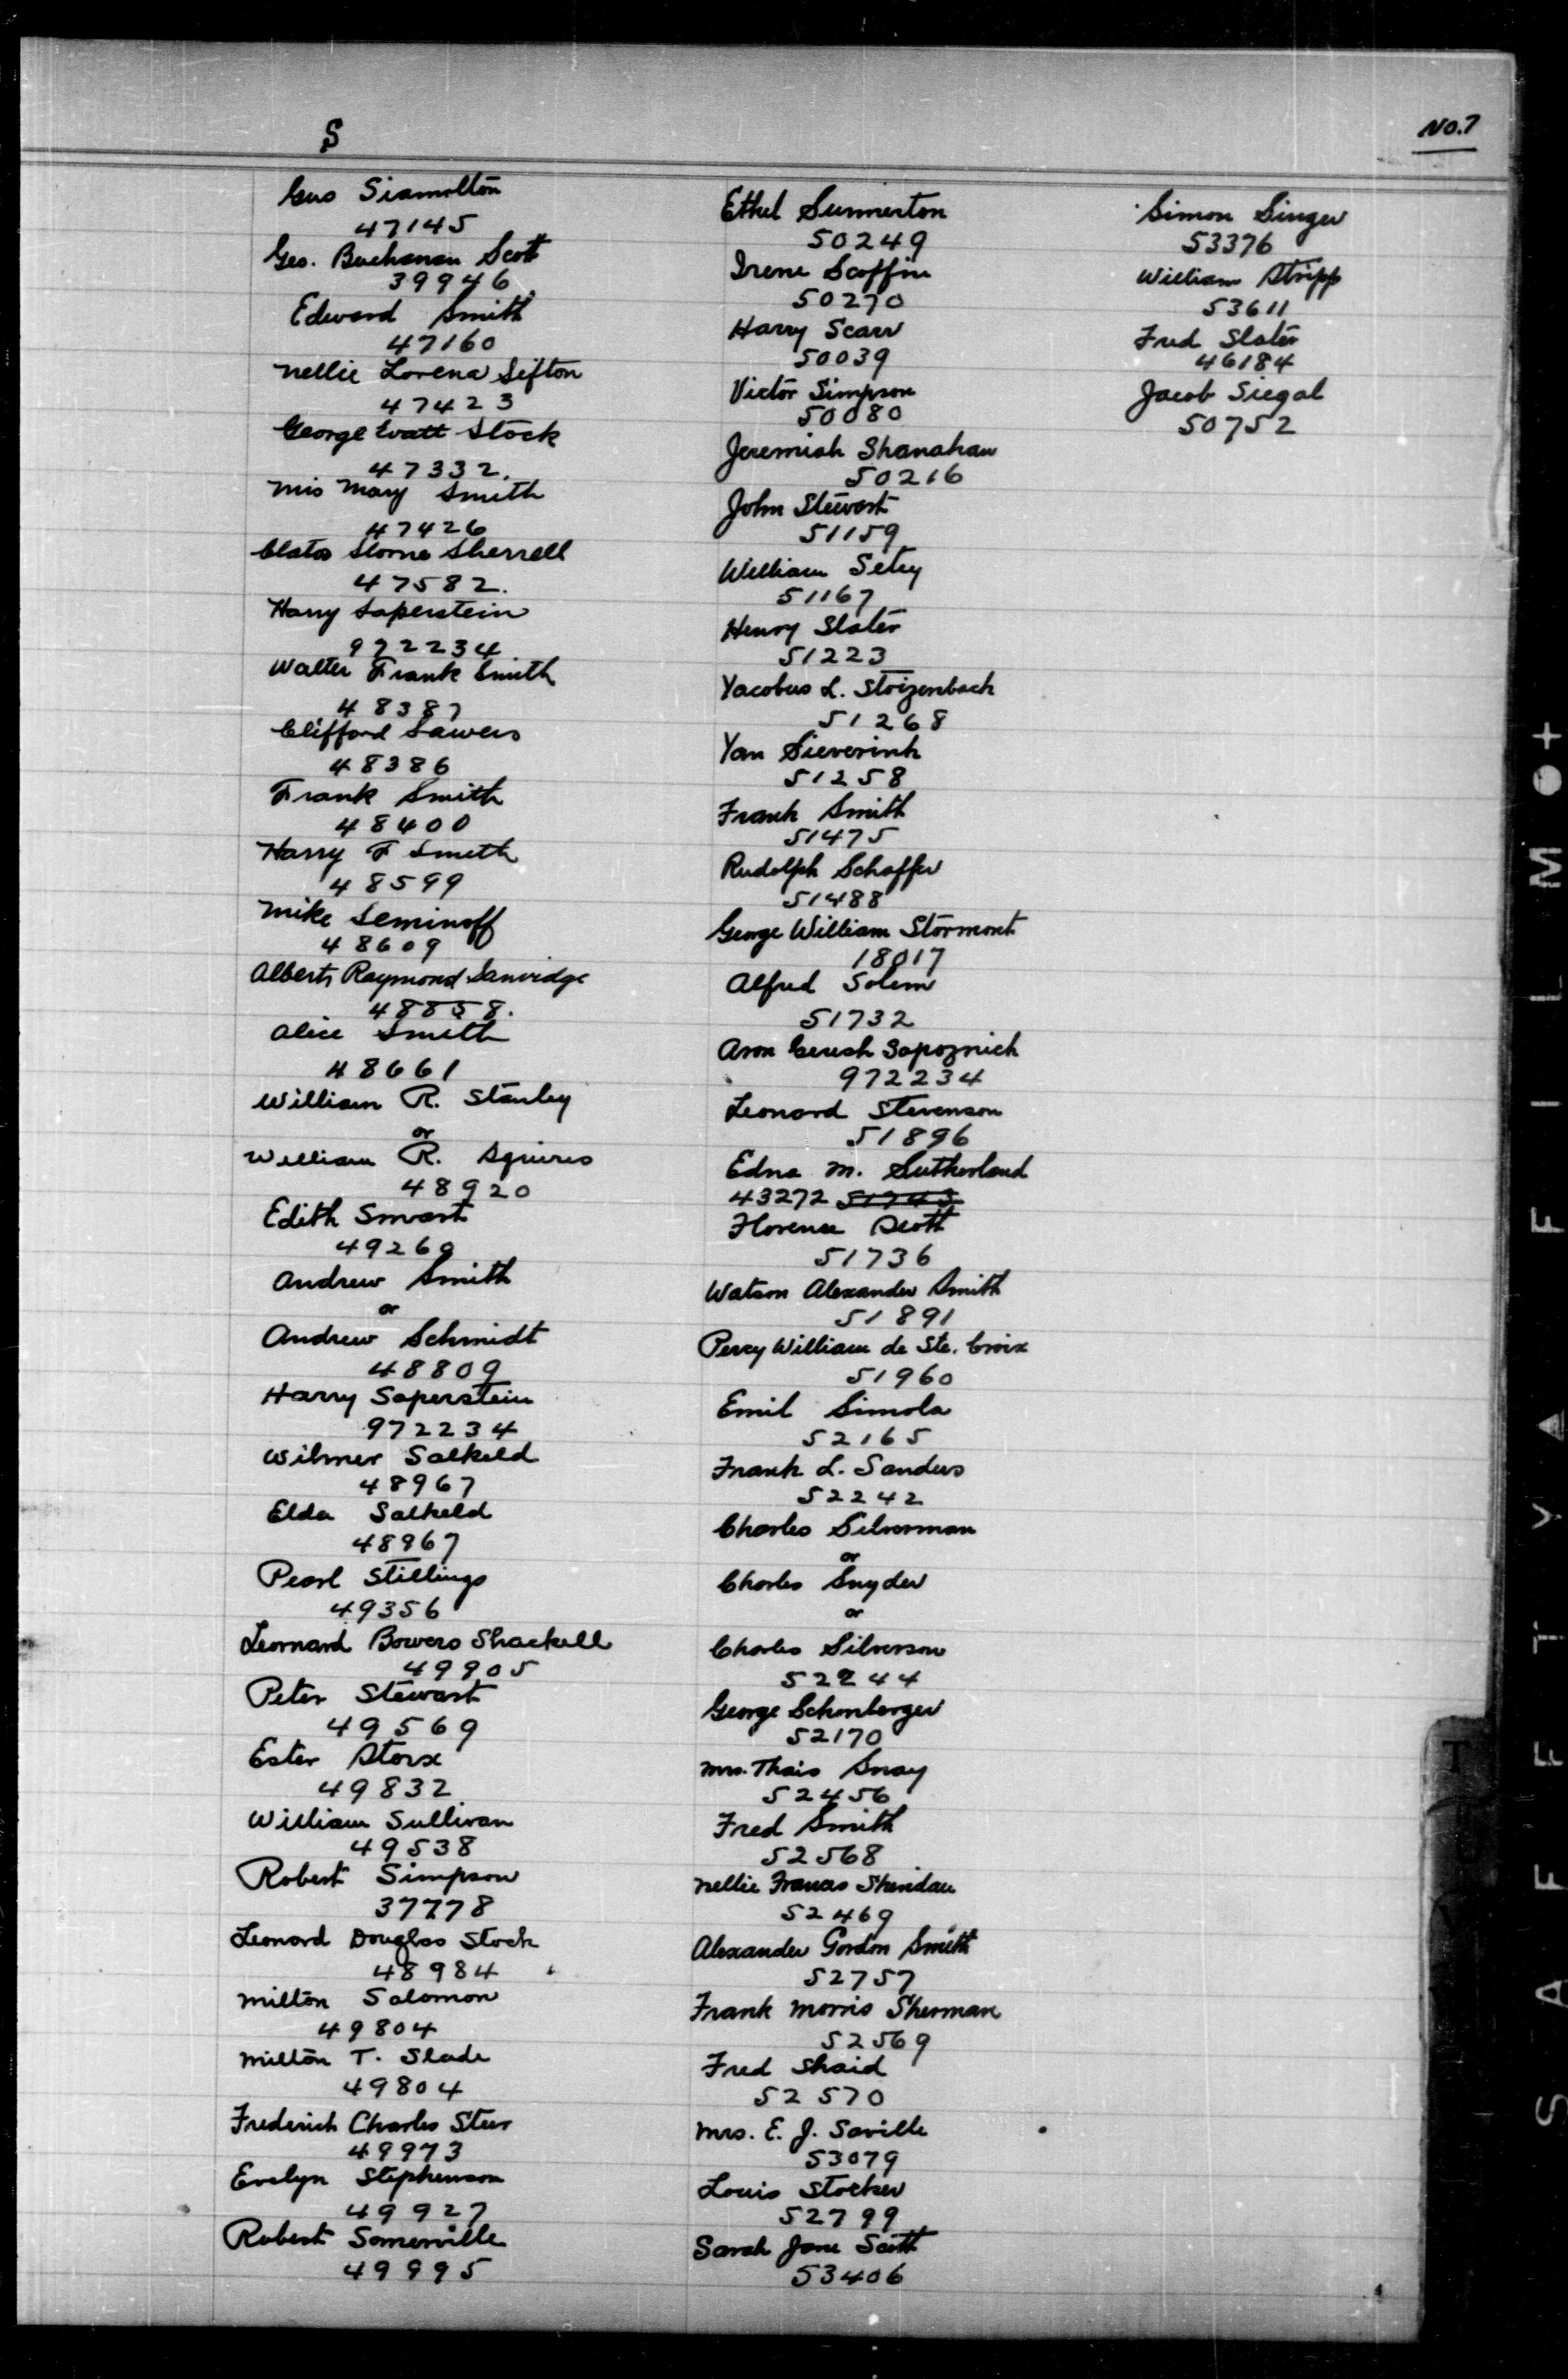 S
No.7
Gus Siamilton
47145
Geo. Buchanan Scott
39946
Edward Smith
47160
Nellie Lorena Sifton
47423
George Watt Stock
47332.
Mis Mary Smith
47426
Sherrell
47582.
Harry Saperstein
972234
Walter Frank Smith
48387
Clifford Sawers
48386
Frank Smith
48400
Harry F Smith
48599
Mike Seminoff
48609
Albert Raymond Sanvidge
48858.
Alice Smith
48661
William R. Stanley
or
William R. Squires
48920
Edith Smart
49269
Andrew Smith
or
Andrew Schmidt
48809
Harry Saperstein
972234
Wilmer Salkeld
48967
Elda Salkeld
48967
Pearl Stillings
49356
Leornard Bowers Shackell
49905
Peter Stewart
49569
Ester Storx
49832
William Sullivan
49538
Robert Simpson
37778
Leonard Douglas Stock
48984
Milton Salomon
49804
Milton T. Slade
49804
Frederick Charles Steer
49973
Evelyn Stephenson
49927
Robert Somerville
49995
Ethel Summerton
50249
Irene Scoffin
50270
Harry Scarr
50039
Victor Simpson
50080
Jeremiah Shanahan
50216
John Stewart
51159
William Setry
51167
Henry Slater
51223
Yacobus L. Stoizenbach
51268
Yan Sieverink
51258
Frank Smith
51475
Rudolph Schaffer
51488
George William Stormont
18017
Alfred Solem
51732
Aron Gerish Sapoznick
972234
Leonard Stevenson
51896
Edna M. Sutherland
43272 51743
Florence Scott
51736
Watson Alexander Smith
51891
Percy William de Ste. Croix
51960
Emil Simola
52165
Frank L. Sanders
52242
Charles Silverman
or
Charles Snyder
or
Charles Silverson
52244
George Schonberger
52170
Mrs. Thais Snay
52456
Fred Smith
52568
Nellie Frances Sheridan
52469
Alexander Gordon Smith
52757
Frank Morris Sherman
52569
Fred Shaid
52570
Mrs. E. J. Saville
53079
Louis Stocker
52799
Sarah Jane Scott
53406
Simon Singer
53376
William Stripp
53611
Fred Slater
46184
Jacob Siegal
50752
T
SAFETY FILM